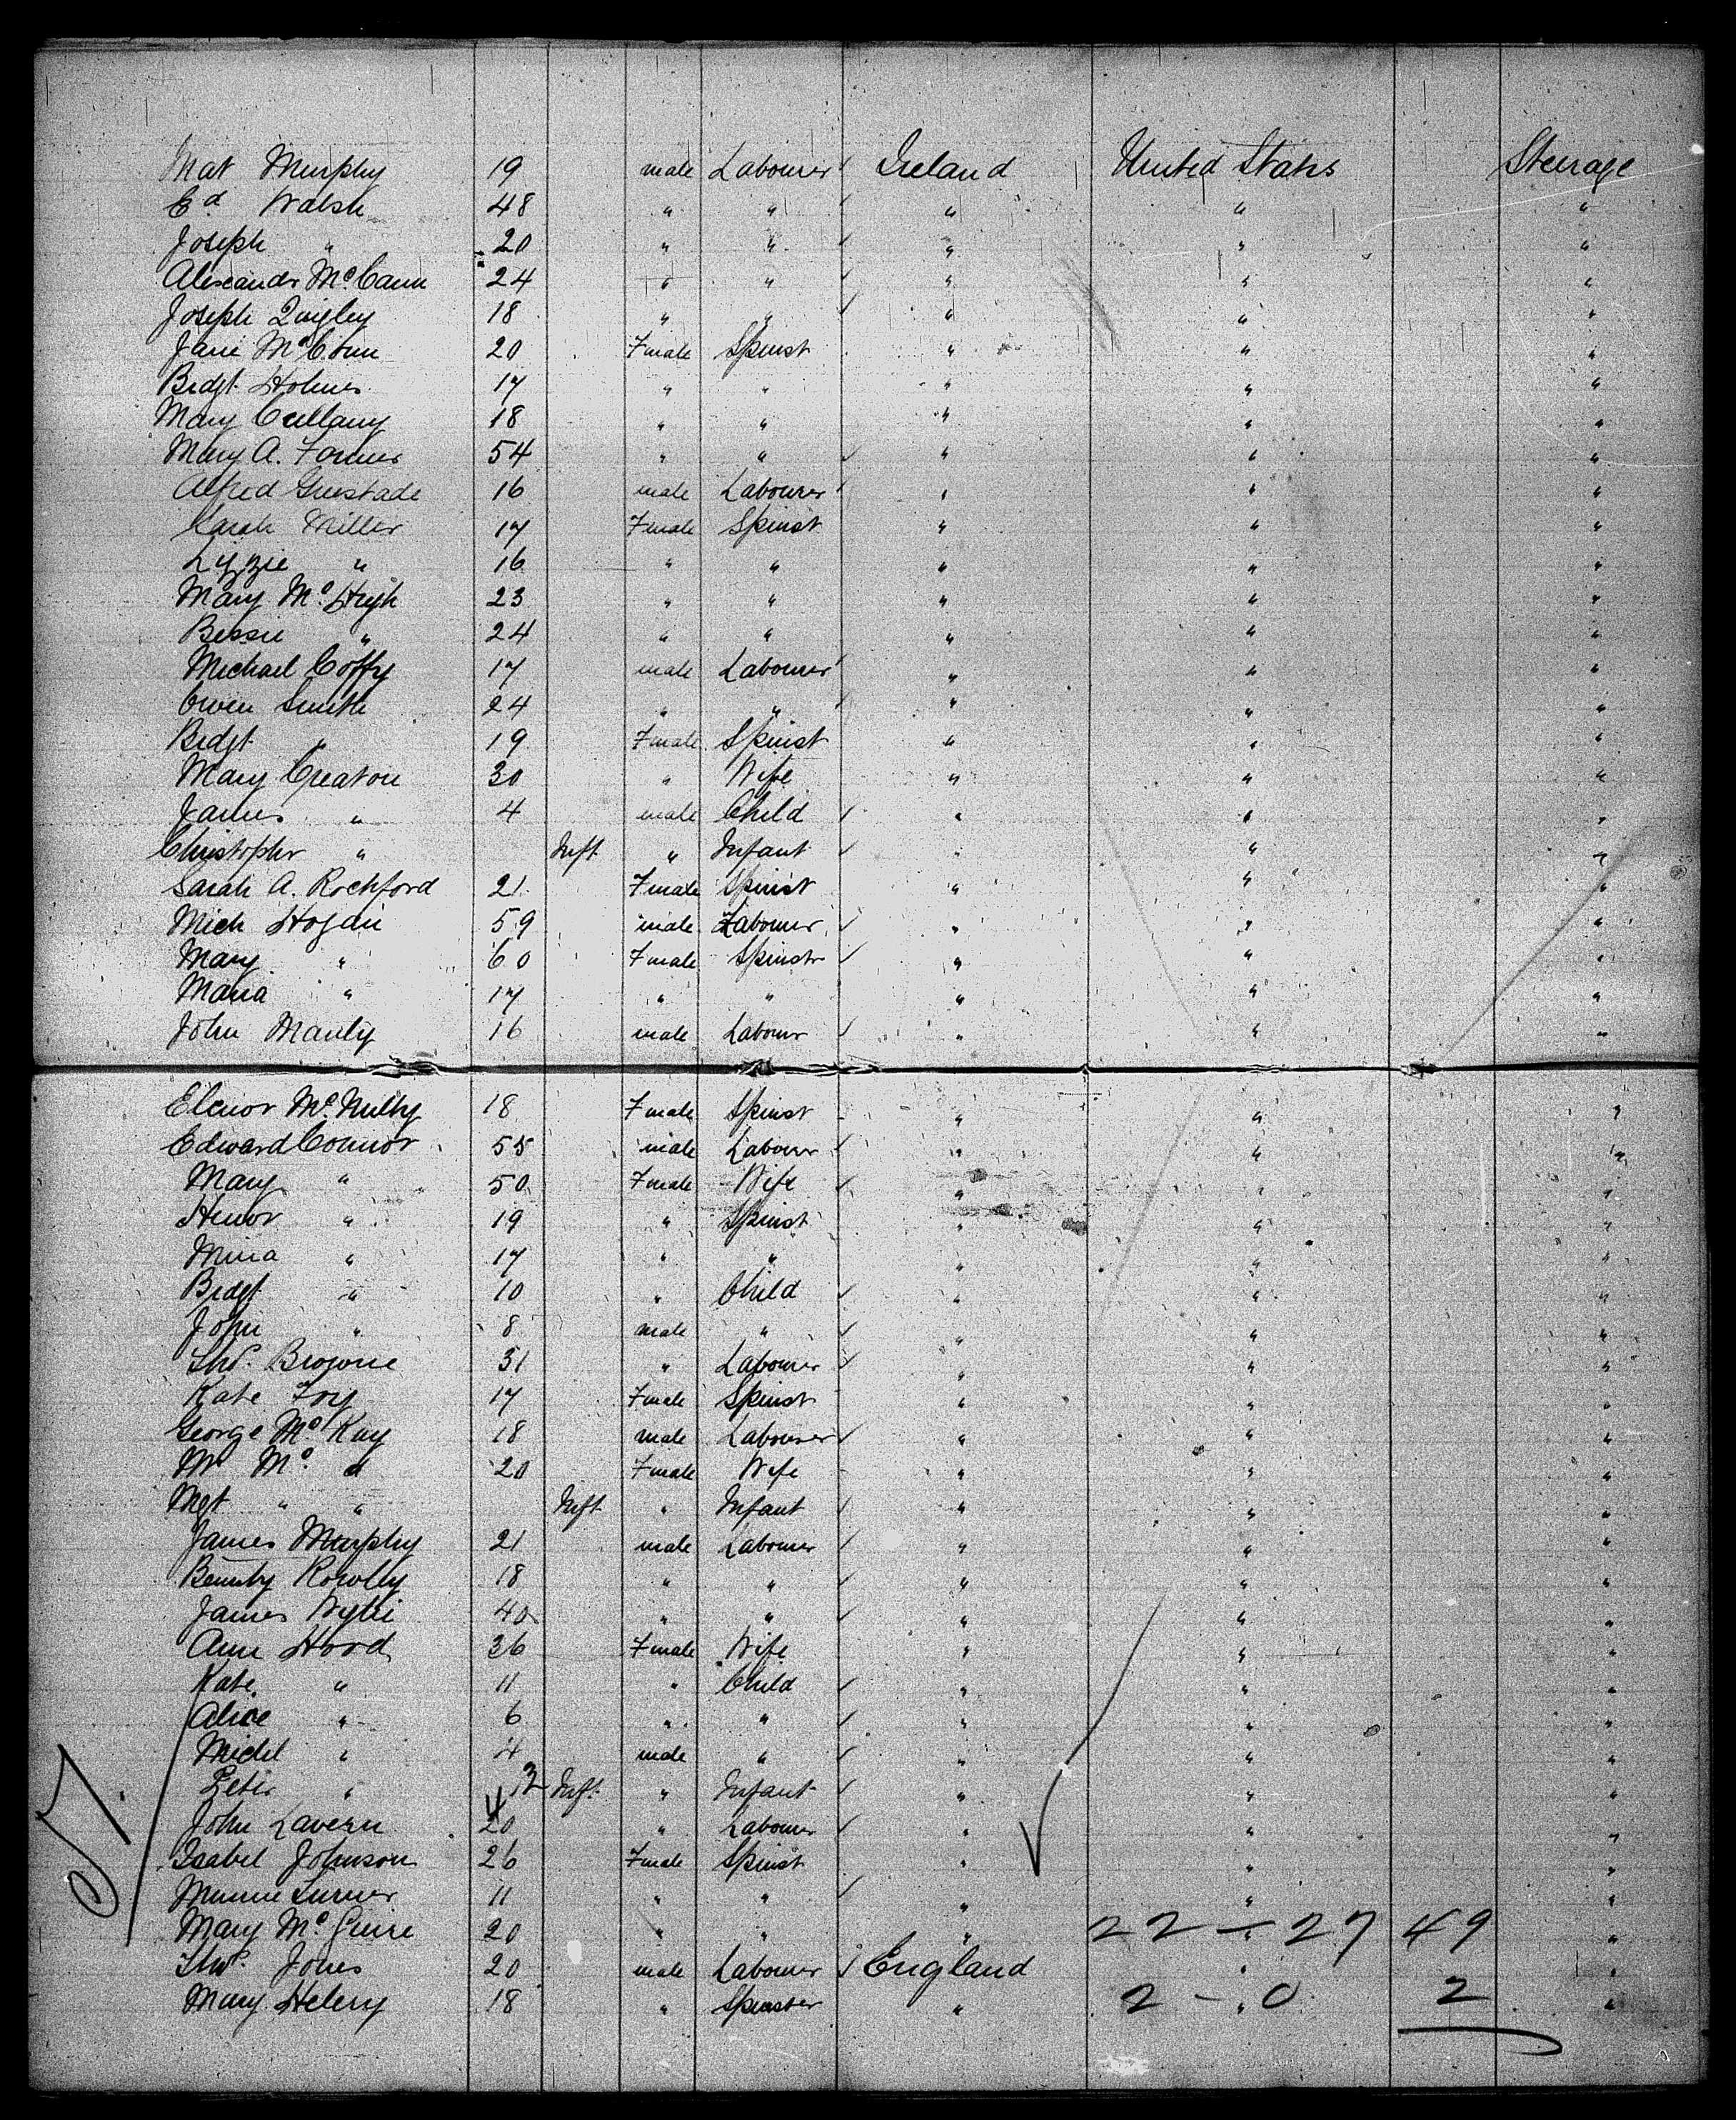 Mat Murphy 19 male Labourer Ireland United States Steerage
Ed Walsh 48 " " " " "
Joseph " 20 " " " " "
Alexander McCann 24 " " " " "
Joseph Quigley 18 " " " " "
Jane McCann 20 Female Spinst " " "
Bridgt Holmes 17 " " " " "
Mary Cullany 18 " " " " "
Mary A. 54 " " " " "
Alfred 16 male Labourer " " "
Sarah Miller 17 Female Spinst " " "
Lizzie " 16 " " " " "
Mary McHugh 23 " " " " "
Bessie " 24 " " " " "
Michael Coffy 17 male Labourer " " "
Owen Smith 24 " " " " "
Bridgt " 19 Female Spinst " " "
Mary Creaton 30 " Wife " " "
James " 4 male Child " " "
Christophr " Inft " Infant " " "
Sarah A. Rochford 21 Female Spinst " " "
Mich Hogan 59 male Labourer " " "
Mary " 60 Female Spinstr " " "
Maria " 17 " " " " "
John Manly 16 male Labour " " "
Elenor McNulty 18 Female Spinst " " "
Edward Connor 55 male Labourr " " "
Mary " 50 Female Wife " " "
" 19 " Spinst " " "
" 17 " " " " "
Bridgt " 10 " Child " " "
John " 8 male " " " "
Thos. Browne 31 " Labourer " " "
Kate Foy 17 Female Spinst " " "
George McKay 18 male Labourer " " "
Mc " 20 Female Wife " " "
Mgt " " Inft " Infant " " "
James Murphy 21 male Labourer " " "
Rowlly 18 " " " " "
James Wylie 40 " " " " "
Ann Hood 36 Female Wife " " "
Kate " 11 " Child " " "
Alice " 6 " " " " "
Michl " 4 male " " " "
Peter " Inft " Infant " " "
John Lavern 20 " Labourer " " "
Isabel Johnson 26 Female Spinst " " "
Minnie Turner 11 " " " " "
Mary McGuire 20 " " " 22 - 27 49 "
Thos. Jones 20 male Labourer England " "
Mary Helery 18 " Spinster " 2 - 0 2 "